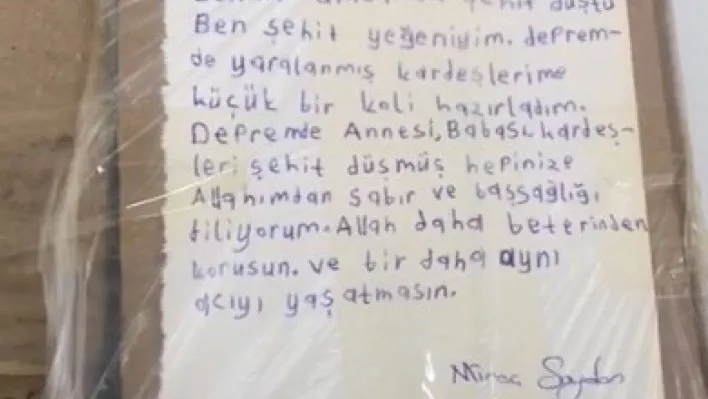 şehit düştü
Ben şehit yeğeniyim. deprem-
de yaralanmış kardeşlerime
küçük bir koli hazırladım.
Depremde Annesi, Babası, kardeş-
leri şehit düşmüş hepinize
Allahımdan sabır ve başsağlığı
diliyorum. Allah daha beterinden
korusun. ve bir daha aynı
acıyı yaşatmasın.